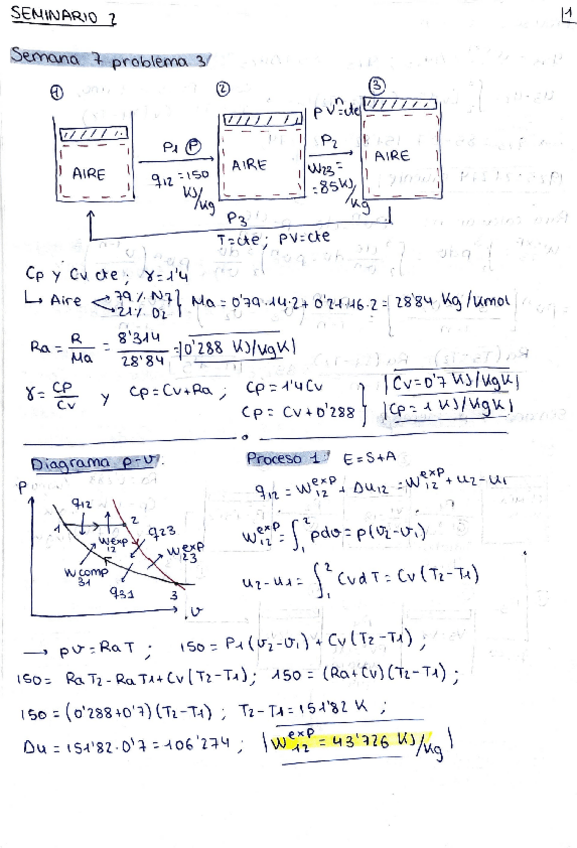 SEMINARIO 2
1
Semana 7 problema 3
① ② ③
PVⁿ=cte
AIRE
P1 Ⓟ
q12 = 150 KJ/kg
AIRE
P2
W23 = =85KJ/kg
AIRE
P3
T=cte; PV=cte
Cp y Cv cte; γ=1'4
↳ Aire 79% N2 21% O2 } Ma = 0'79·14·2 + 0'21·16·2 = 28'84 Kg/Kmol
Ra = R/Ma = 8'314/28'84 = |0'288 KJ/KgK|
γ = Cp/Cv y Cp = Cv+Ra; Cp = 1'4Cv
Cp = Cv + 0'288 } |Cv=0'7 KJ/KgK|
|Cp = 1 KJ/KgK|
Diagrama p-v.
Proceso 1: E=S+A
P
q12
1 2
W exp 12
q23
W exp 23
W comp 31
q31
3
v
q12 = W12^exp + Δu12 = W12^exp + u2 - u1
W12^exp = ∫₁² pdv = p(v2-v1)
u2-u1 = ∫₁² Cv dT = Cv(T2-T1)
→ pv=RaT; 150 = P1(v2-v1) + Cv(T2-T1);
150 = RaT2 - RaT1 + Cv(T2-T1); 150 = (Ra+Cv)(T2-T1);
150 = (0'288+0'7)(T2-T1); T2-T1 = 151'82 K;
Δu = 151'82·0'7 = 106'274; |W12^exp = 43'726 KJ/kg|